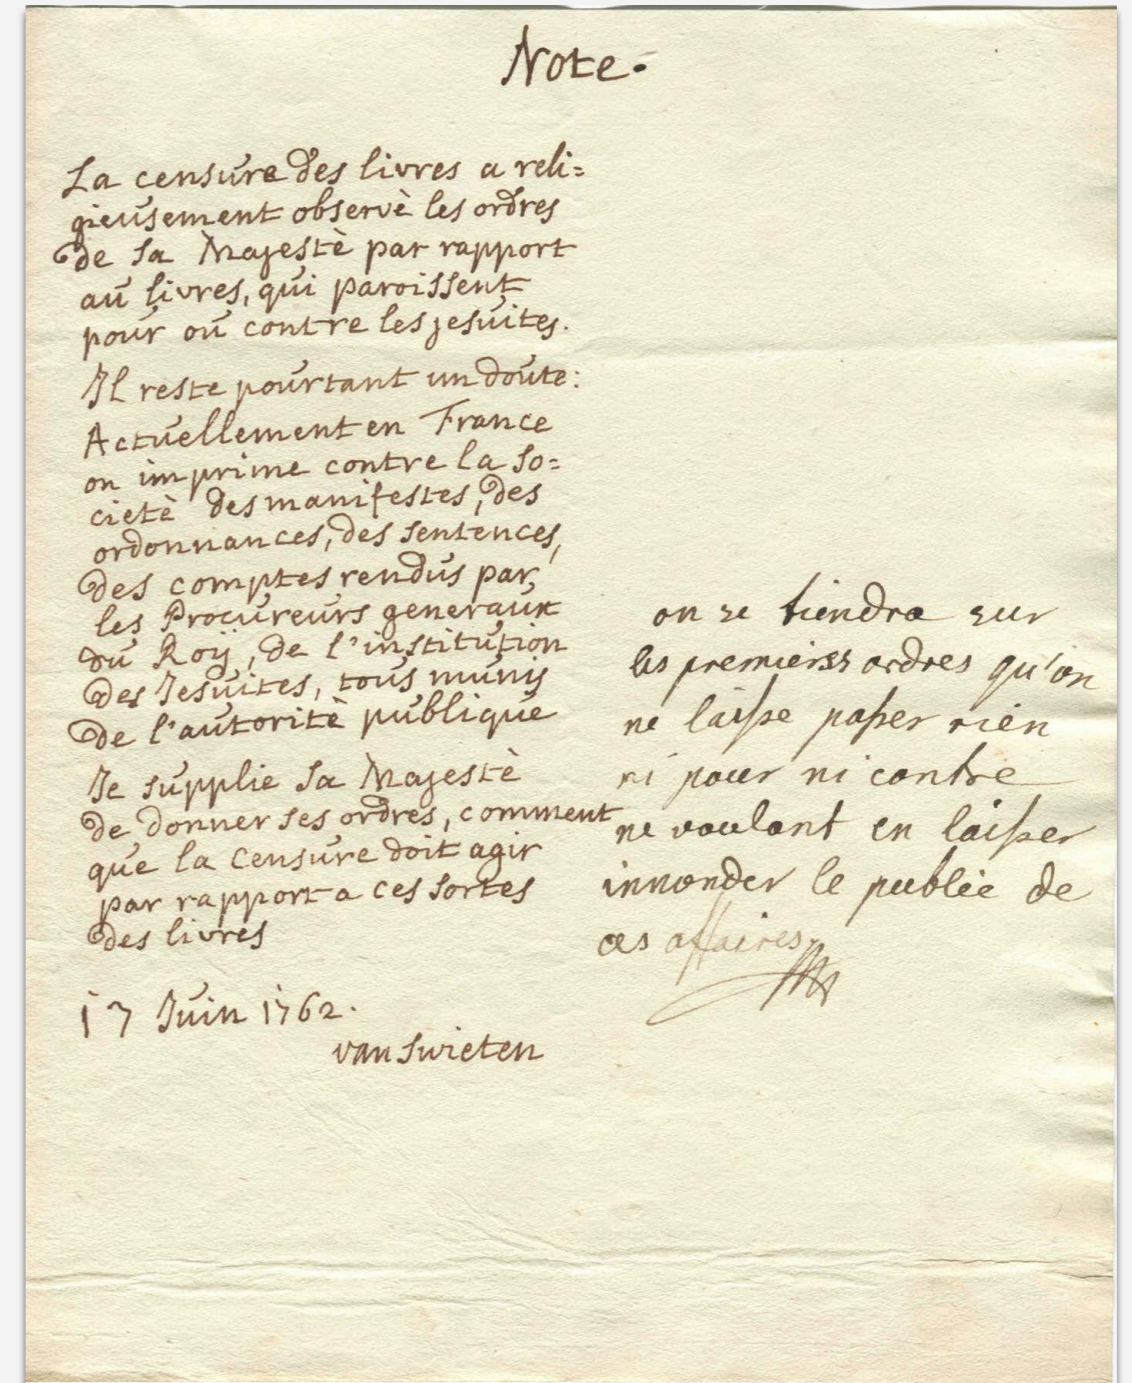 Note.
La censure des livres a reli=
gieusement observè les ordres
de sa Majestè par rapport
au livres, qui paroissent
pour ou contre les jesuites.
Il reste pourtant un doute:
Actuellement en France
on imprime contre la so=
cietè des manifestes, des
ordonnances, des sentences,
des comptes rendus par,
les Procureurs generaux
du Roÿ, de l'institution
des Jesuites, tous munis
de l'autoritè publique
Je supplie sa Majestè
de donner ses ordres, comment
que la censure doit agir
par rapport a ces sortes
des livres
17 Juin 1762.
van Swieten
on se tiendra sur
les premierss ordres qu'on
ne laisse passer rien
ni pour ni contre
ne voulant en laisser
innonder le publie de
ces affaires